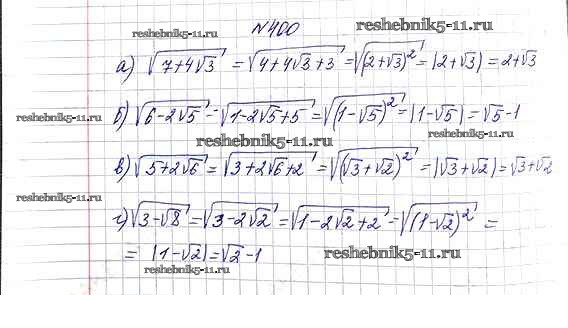 №400
reshebnik5-11.ru
reshebnik5-11.ru
а) √(7+4√3) = √(4+4√3+3) = √((2+√3)²) = |2+√3| = 2+√3
reshebnik5-11.ru
б) √(6-2√5) = √(1-2√5+5) = √((1-√5)²) = |1-√5| = √5-1
reshebnik5-11.ru
reshebnik5-11.ru
в) √(5+2√6) = √(3+2√6+2) = √((√3+√2)²) = |√3+√2| = √3+√2
reshebnik5-11.ru
г) √(3-√8) = √(3-2√2) = √(1-2√2+2) = √((1-√2)²) =
= |1-√2| = √2-1
reshebnik5-11.ru
reshebnik5-11.ru